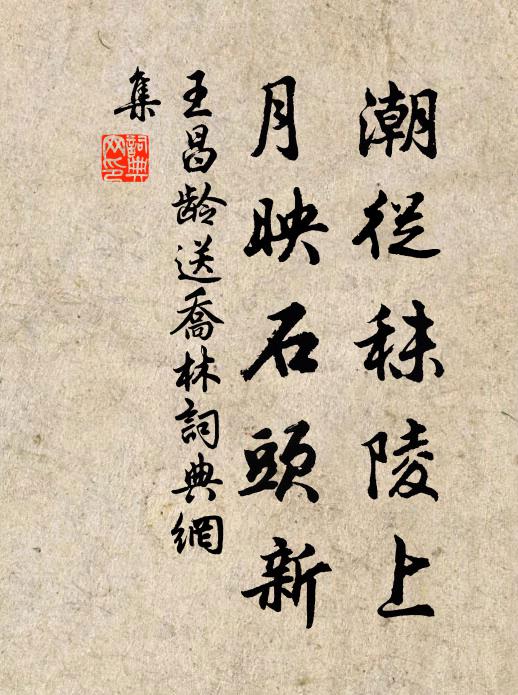 潮從秣陵上
月映石頭新
王昌龄送喬林詞典網
集
詞典
网印